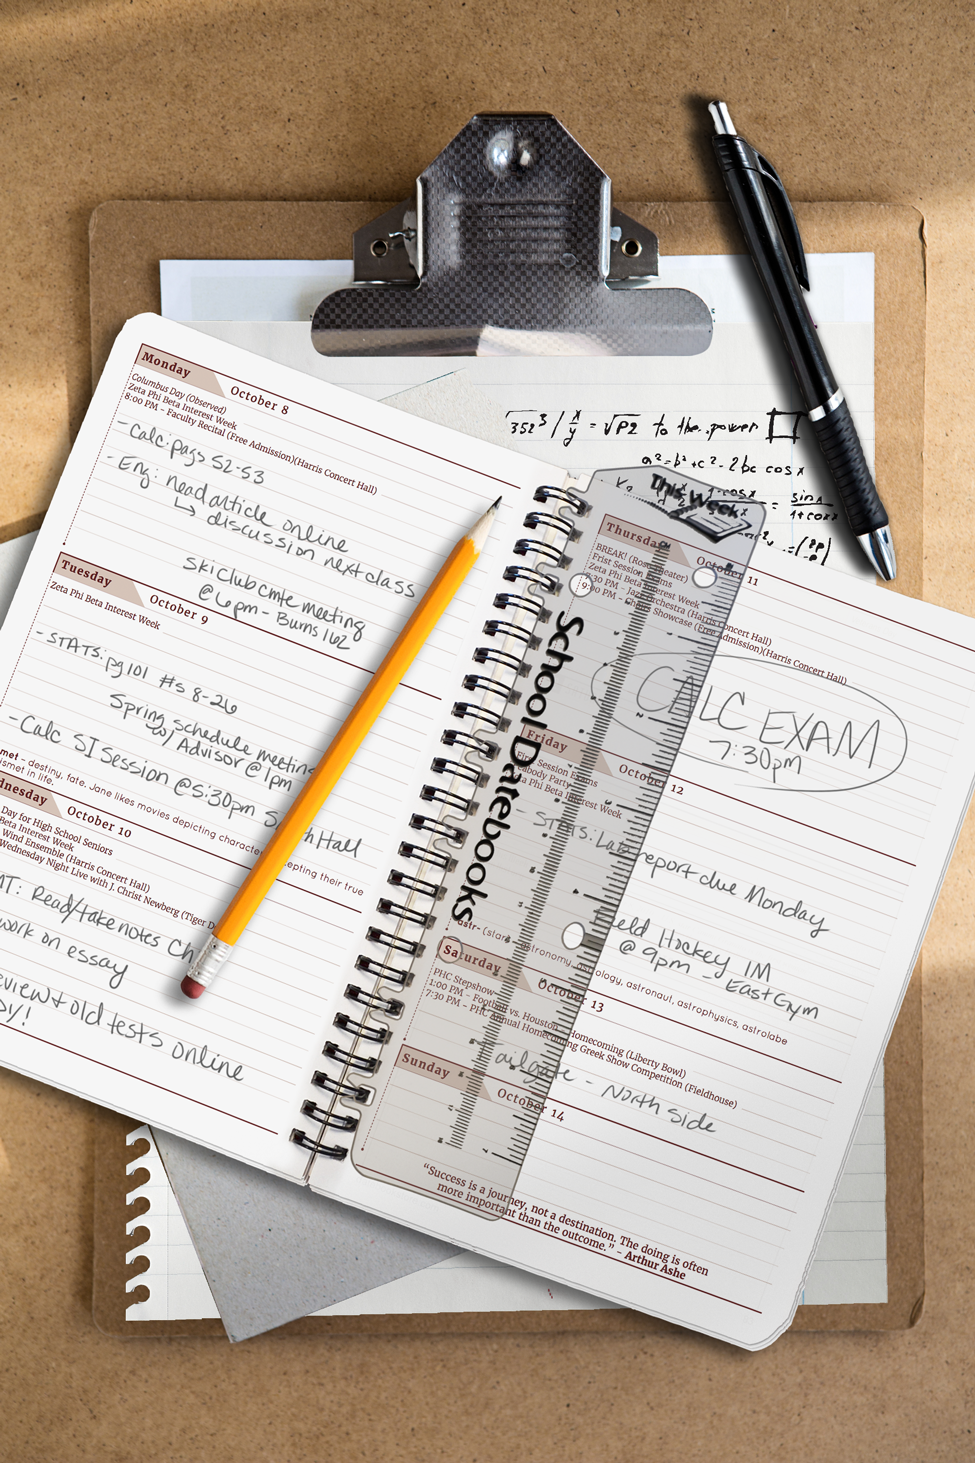 Monday October 8
Columbus Day (Observed)
Zeta Phi Beta Interest Week
8:00 PM – Faculty Recital (Free Admission)(Harris Concert Hall)
- Calc: pags 52-53
- Eng: read article online
↳ discussion next class
Ski Club cmte meeting
@ 6pm - Burns 102
Tuesday October 9
Zeta Phi Beta Interest Week
- STATS: pg 101 #s 8-26
Spring schedule meeting
w/ Advisor @ 1pm
- Calc SI Session @ 5:30pm S th Hall
met – destiny, fate. Jane likes movies depicting character epting their true
ismet in life.
dnesday October 10
Day for High School Seniors
Beta Interest Week
Wind Ensemble (Harris Concert Hall)
Wednesday Night Live with J. Christ Newberg (Tiger D
MT: Read/take notes Ch
work on essay
eview + old tests online
py!
35z³ / x/y = √P2 to the power
a² = b² + c² - 2bc cos x
sin x
1+cos x
This Week
School Datebooks
Thursday October 11
BREAK! (Rose Theater)
First Session Exams
Zeta Phi Beta Interest Week
7:30 PM – Jazz Orchestra (Harris Concert Hall)
9:00 PM – Choral Showcase (Free Admission)(Harris Concert Hall)
CALC EXAM
7:30pm
Friday October 12
First Session Exams
Peabody Party
Zeta Phi Beta Interest Week
STATS: Lab report due Monday
Field Hockey IM
@ 9pm - East Gym
astr- (star) astronomy, astrology, astronaut, astrophysics, astrolabe
Saturday October 13
PHC Stepshow
1:00 PM – Football vs. Houston – Homecoming (Liberty Bowl)
7:30 PM – PHC Annual Homecoming Greek Show Competition (Fieldhouse)
Tailgate - North Side
Sunday October 14
“Success is a journey, not a destination. The doing is often
more important than the outcome.” – Arthur Ashe